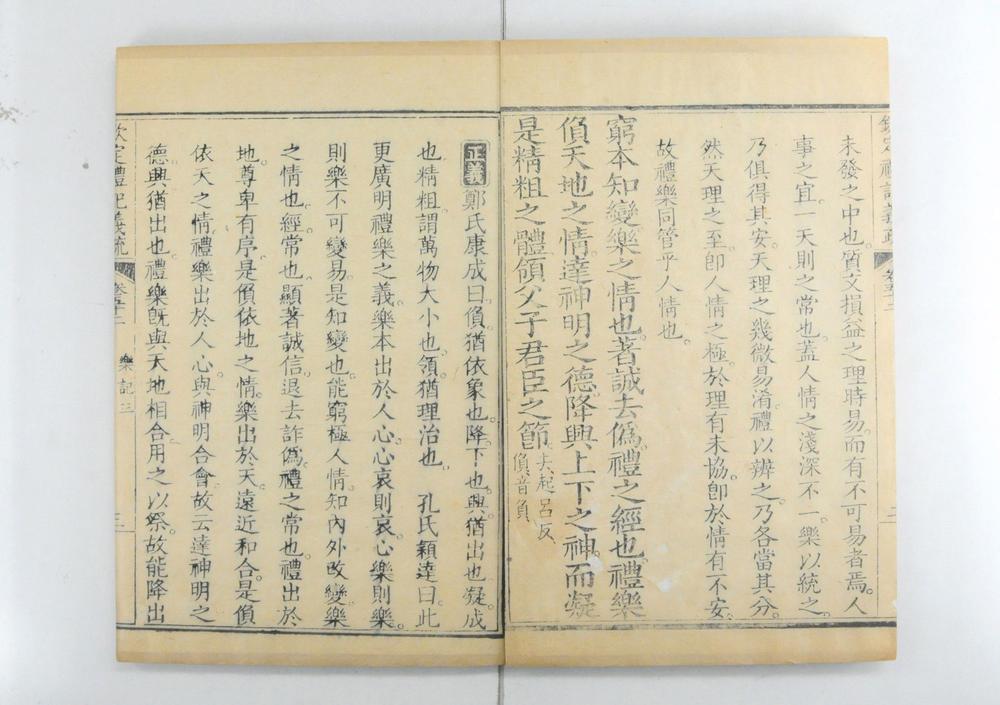 欽定禮記義疏 卷五十二 二
未發之中也。質文損益之理時易。而有不可易者焉。人
事之宜。一天則之常也。蓋人情之淺深不一。樂以統之。
乃俱得其安。天理之幾微易淆。禮以辨之。乃各當其分。
然天理之至。卽人情之極。於理有未協。卽於情有不安。
故禮樂同管乎人情也。
窮本知變。樂之情也。著誠去僞。禮之經也。禮樂
偩天地之情。達神明之德。降興上下之神。而凝
是精粗之體。領父子君臣之節。
去起呂反
偩音負
正義 鄭氏康成曰。偩。猶依象也。降。下也。興。猶出也。凝。成
也。精粗。謂萬物大小也。領。猶理治也。 孔氏穎達曰。此
更廣明禮樂之義。樂本出於人心。心哀則哀。心樂則樂。
則樂不可變易。是知變也。能窮極人情。知內外改變。樂
之情也。經。常也。顯著誠信。退去詐僞。禮之常也。禮出於
地。尊卑有序。是偩依地之情。樂出於天。遠近和合。是偩
依天之情。禮樂出於人心。與神明合會。故云達神明之
德。興猶出也。禮樂旣與天地相合。用之以祭。故能降出
欽定禮記義疏 卷五十二 樂記三 三